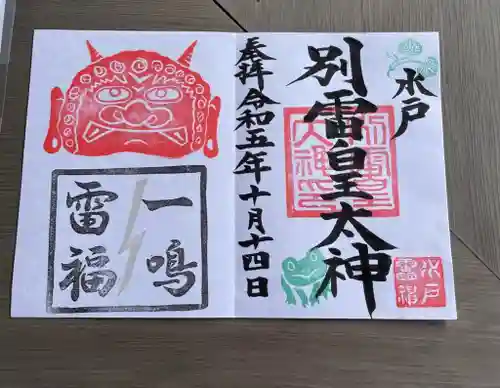 水戸
別雷皇太神
奉拝 令和五年十月十四日
一鳴
雷福
別雷皇
太神印
水戸
雷神